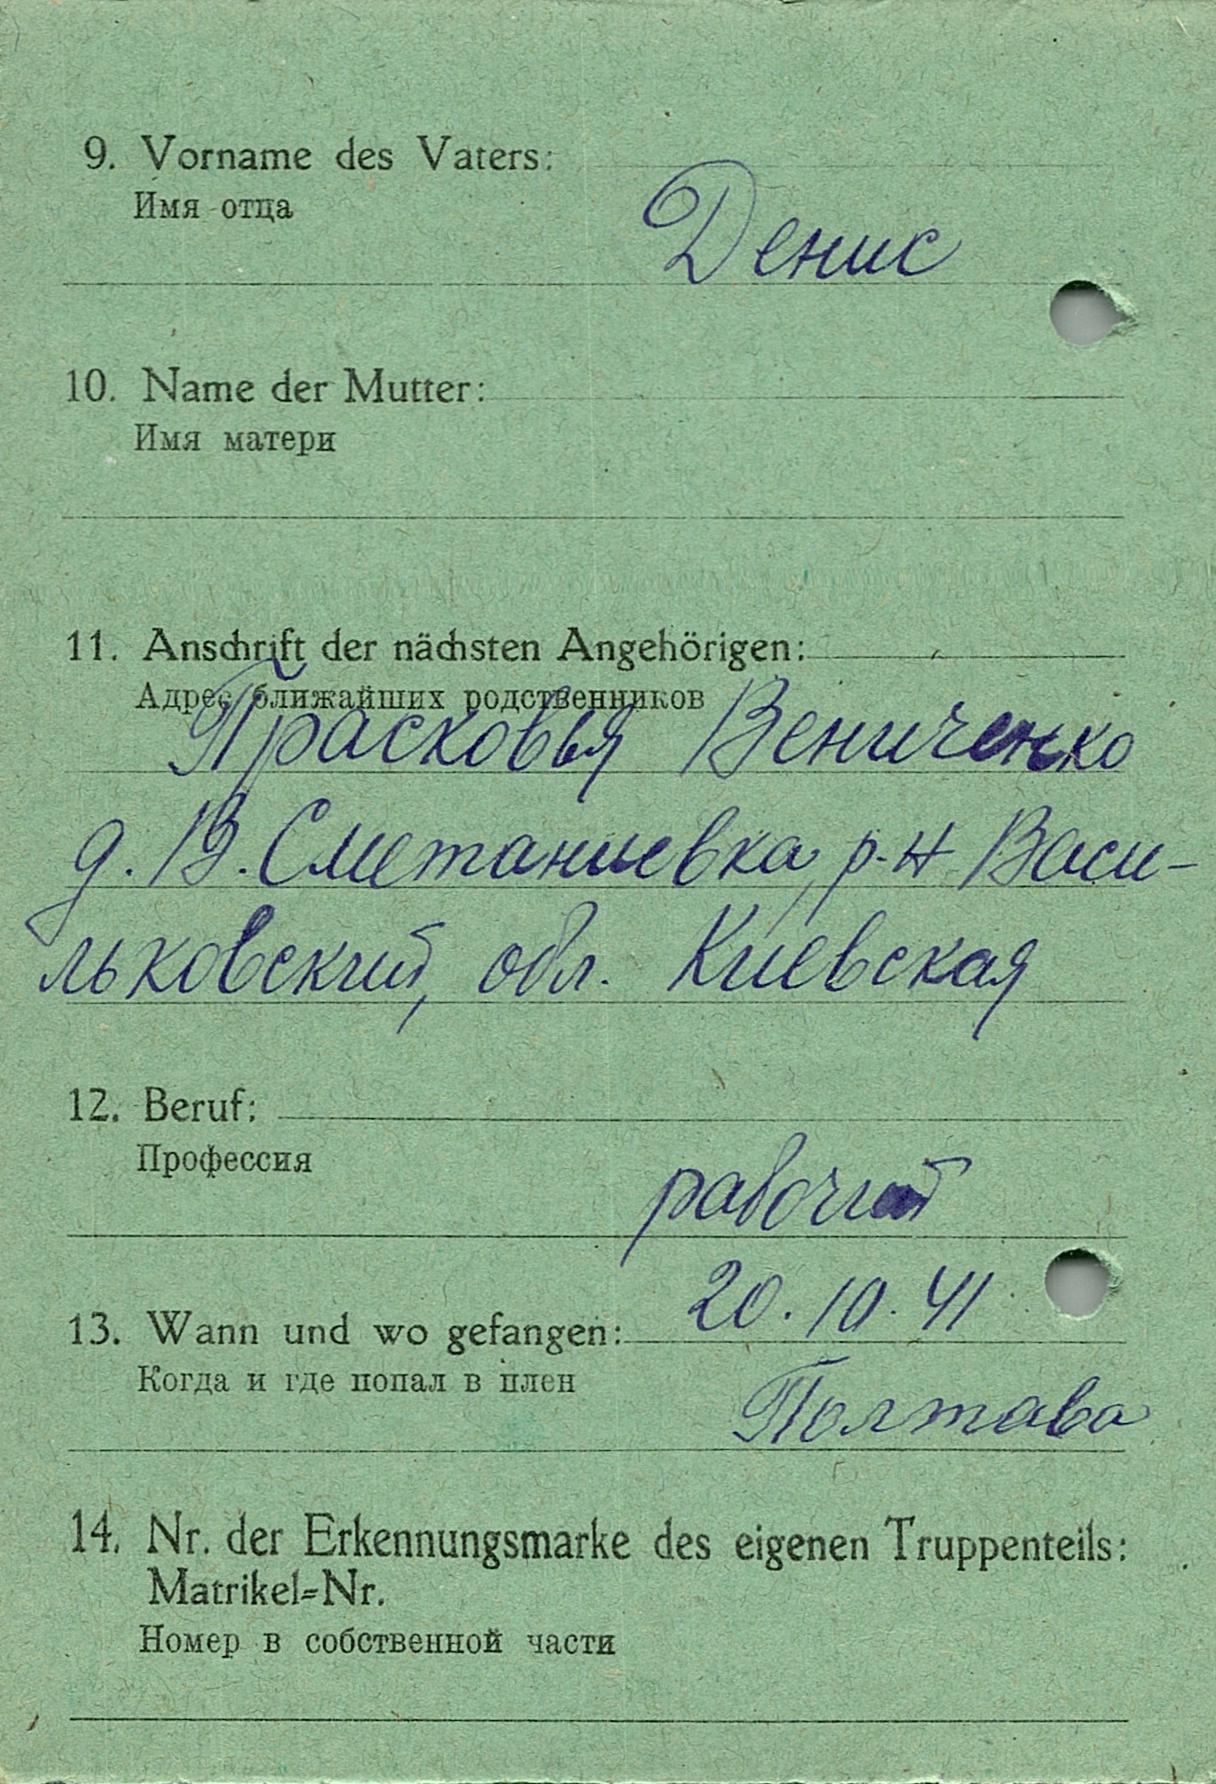 9. Vorname des Vaters:
Имя отца
Денис
10. Name der Mutter:
Имя матери
11. Anschrift der nächsten Angehörigen:
Адрес ближайших родственников
Прасковья Вениченко
д. В. Сметаниевка, р-н Васи-
льковский, обл. Киевская
12. Beruf:
Профессия
рабочий
20.10.41
13. Wann und wo gefangen:
Когда и где попал в плен
Полтава
14. Nr. der Erkennungsmarke des eigenen Truppenteils:
Matrikel=Nr.
Номер в собственной части